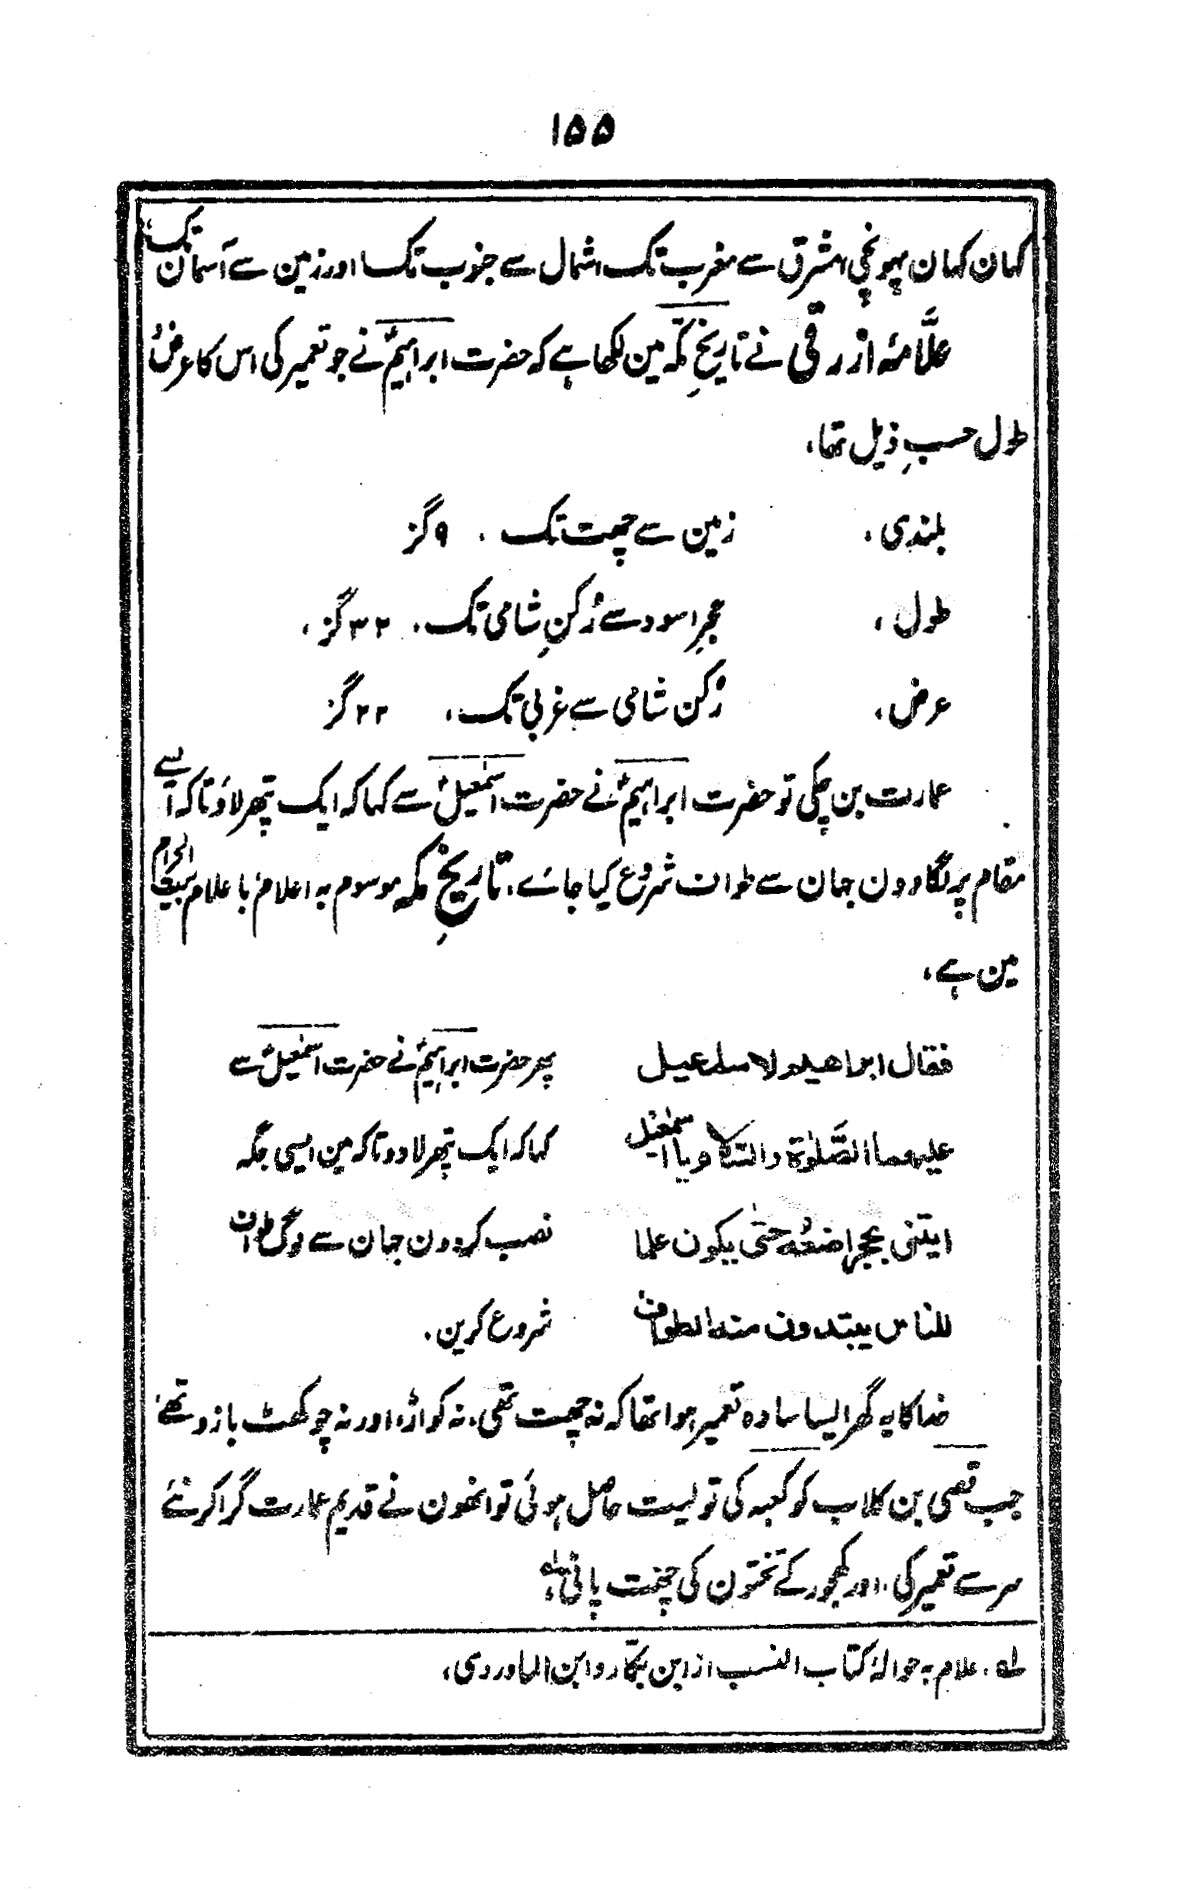 ۱۵۵
کہان کہان پہونچی، مشرق سے مغرب تک، شمال سے جنوب تک اور زمین سے آسمان تک،
علّامۂ ازرقی نے تاریخِ مکّہ مین لکھا ہے کہ حضرت ابراہیمؑ نے جو تعمیر کی اس کا عرض و
طول حسبِ ذیل تھا،
بلندی، زمین سے چھت تک، ۹ گز
طول، حجرِ اسود سے رُکنِ شامی تک، ۳۲ گز،
عرض، رُکن شامی سے غربی تک، ۲۲ گز
عمارت بن چکی تو حضرت ابراہیمؑ نے حضرت اسمٰعیلؑ سے کہا کہ ایک پتھر لاؤ تاکہ ایسے
مقام پر لگا دون جہان سے طواف شروع کیا جائے، تاریخِ مکہ موسوم بہ اعلام باعلام بیت الحرام
مین ہے،
فقال ابراھیم لاسماعیل پھر حضرت ابراہیمؑ نے حضرت اسمٰعیلؑ سے
علیھما الصَّلوٰۃ والسّلام یا اسمٰعیل کہا کہ ایک پتھر لادو تاکہ مین ایسی جگہ
ایتنی بحجر اضعُہ حتیٰ یکون علما نصب کر دون جہان سے لوگ طواف
للناس یبتدون منہ الطواف شروع کرین،
خدا کا یہ گھر ایسا سادہ تعمیر ہوا تھا کہ نہ چھت تھی، نہ کواڑ، اور نہ چوکھٹ بازو تھے،
جب قصی بن کلاب کو کعبہ کی تولیت حاصل ہوئی تو انھون نے قدیم عمارت گرا کر نئے
سر سے تعمیر کی، اور کھجور کے تختون کی چھت پاٹی،
لہ، علام بہ حوالۂ کتاب النسب از ابن بکّار و ابن الماوردی،